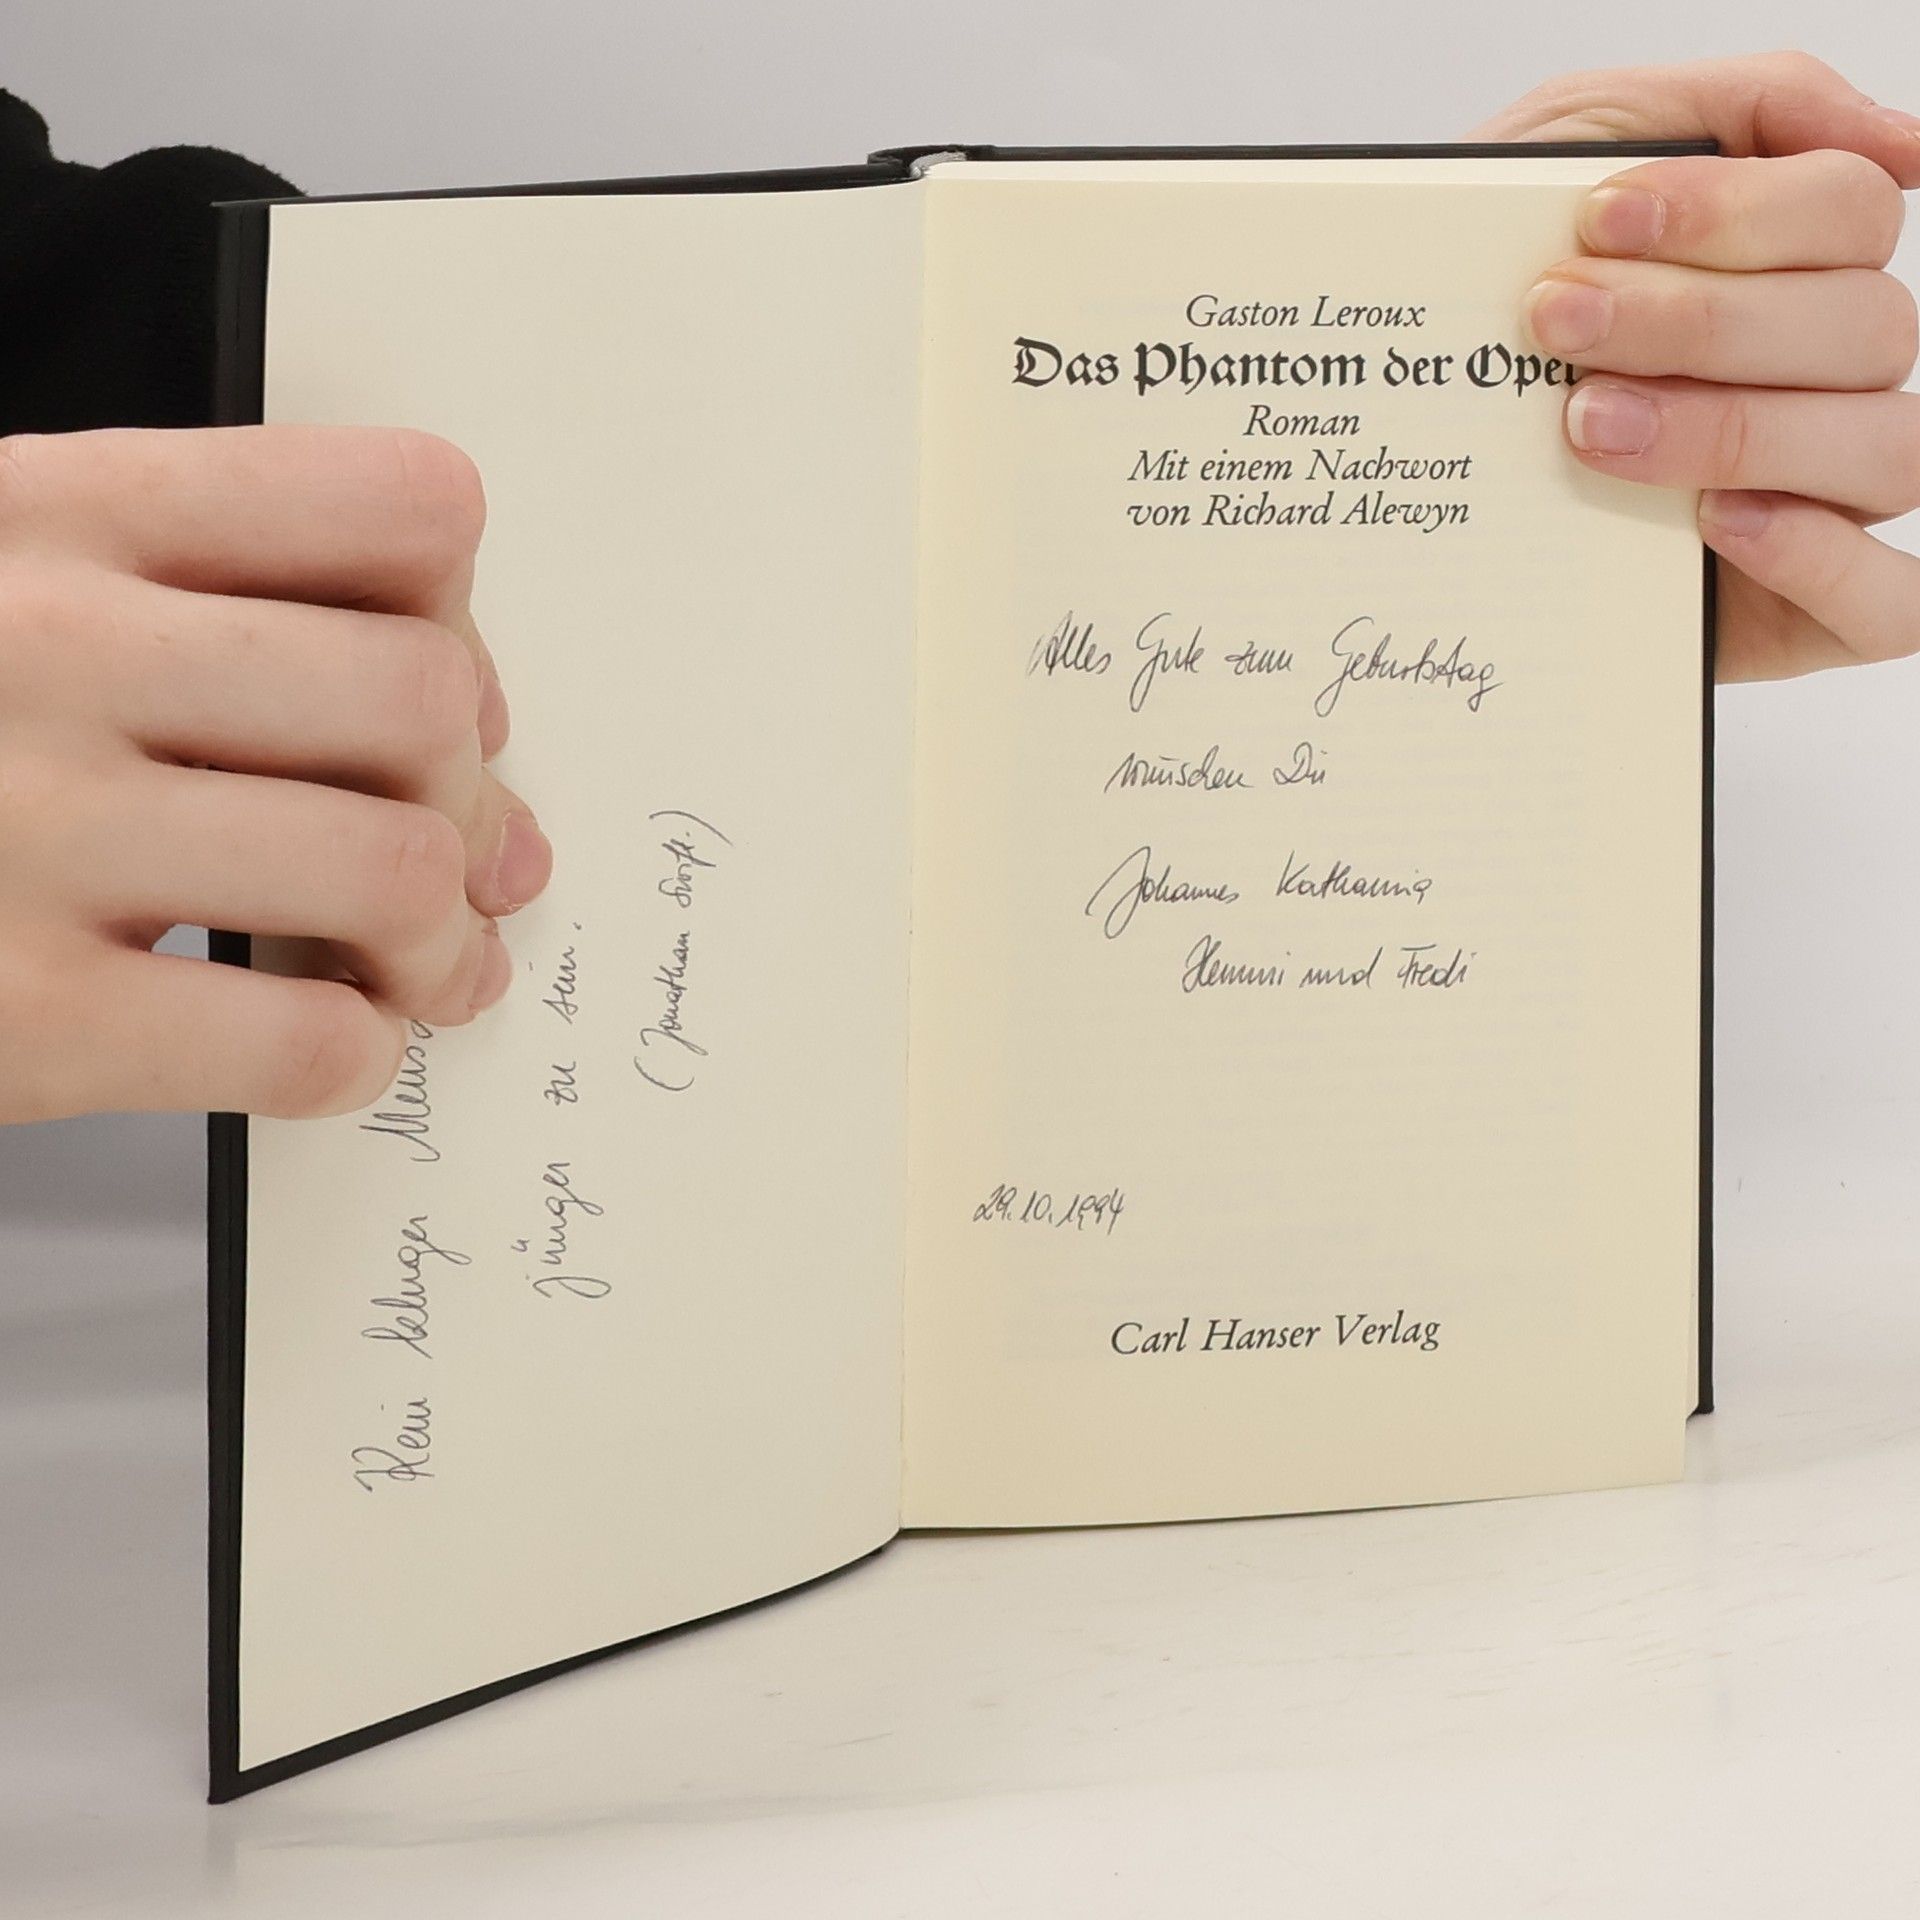 Kein kluger Mensc
jünger zu sein.
(Jonathan Swift.)
Gaston Leroux
Das Phantom der Oper
Roman
Mit einem Nachwort
von Richard Alewyn
Alles Gute zum Geburtstag
wünschen Dir
Johannes Katharina
Hemmi und Fredi
29.10.1994
Carl Hanser Verlag